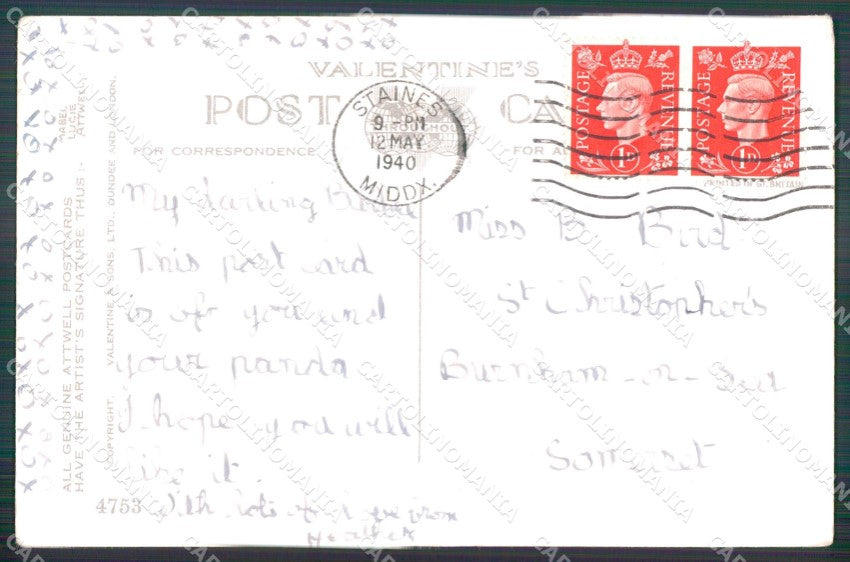 VALENTINE'S
POST CA
FOR CORRESPONDENCE
FOR A
STAINES
9 - PM
12 MAY
1940
MIDDX.
POSTAGE REVENUE
1D
POSTAGE REVENUE
1D
PRINTED IN GT. BRITAIN
My darling
This post card
is of you and
your panda
I hope you will
like it.
With lots of love from
Heather
Miss B. Bird
St Christopher's
Burnham-on-Sea
Somerset
4753
ALL GENUINE ATTWELL POSTCARDS
HAVE THE ARTIST'S SIGNATURE THUS:-
MABEL
LUCIE
ATTWELL
COPYRIGHT. VALENTINE & SONS, LTD. DUNDEE AND LONDON.
CARTOLINOMANIA